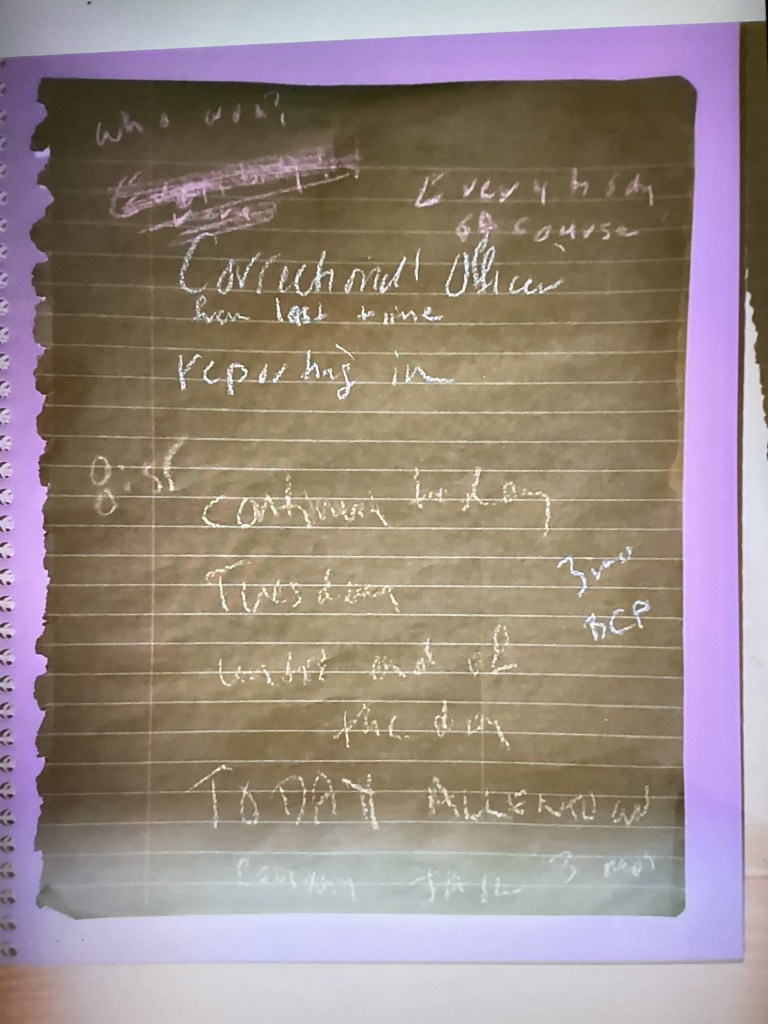 who won?
Everybody
of course
Correctional Officer
from last time
reporting in
8:55
continuing today
Tuesday
3
BCP
until end of
the day
TODAY ALLENTOWN
County JAIL 3